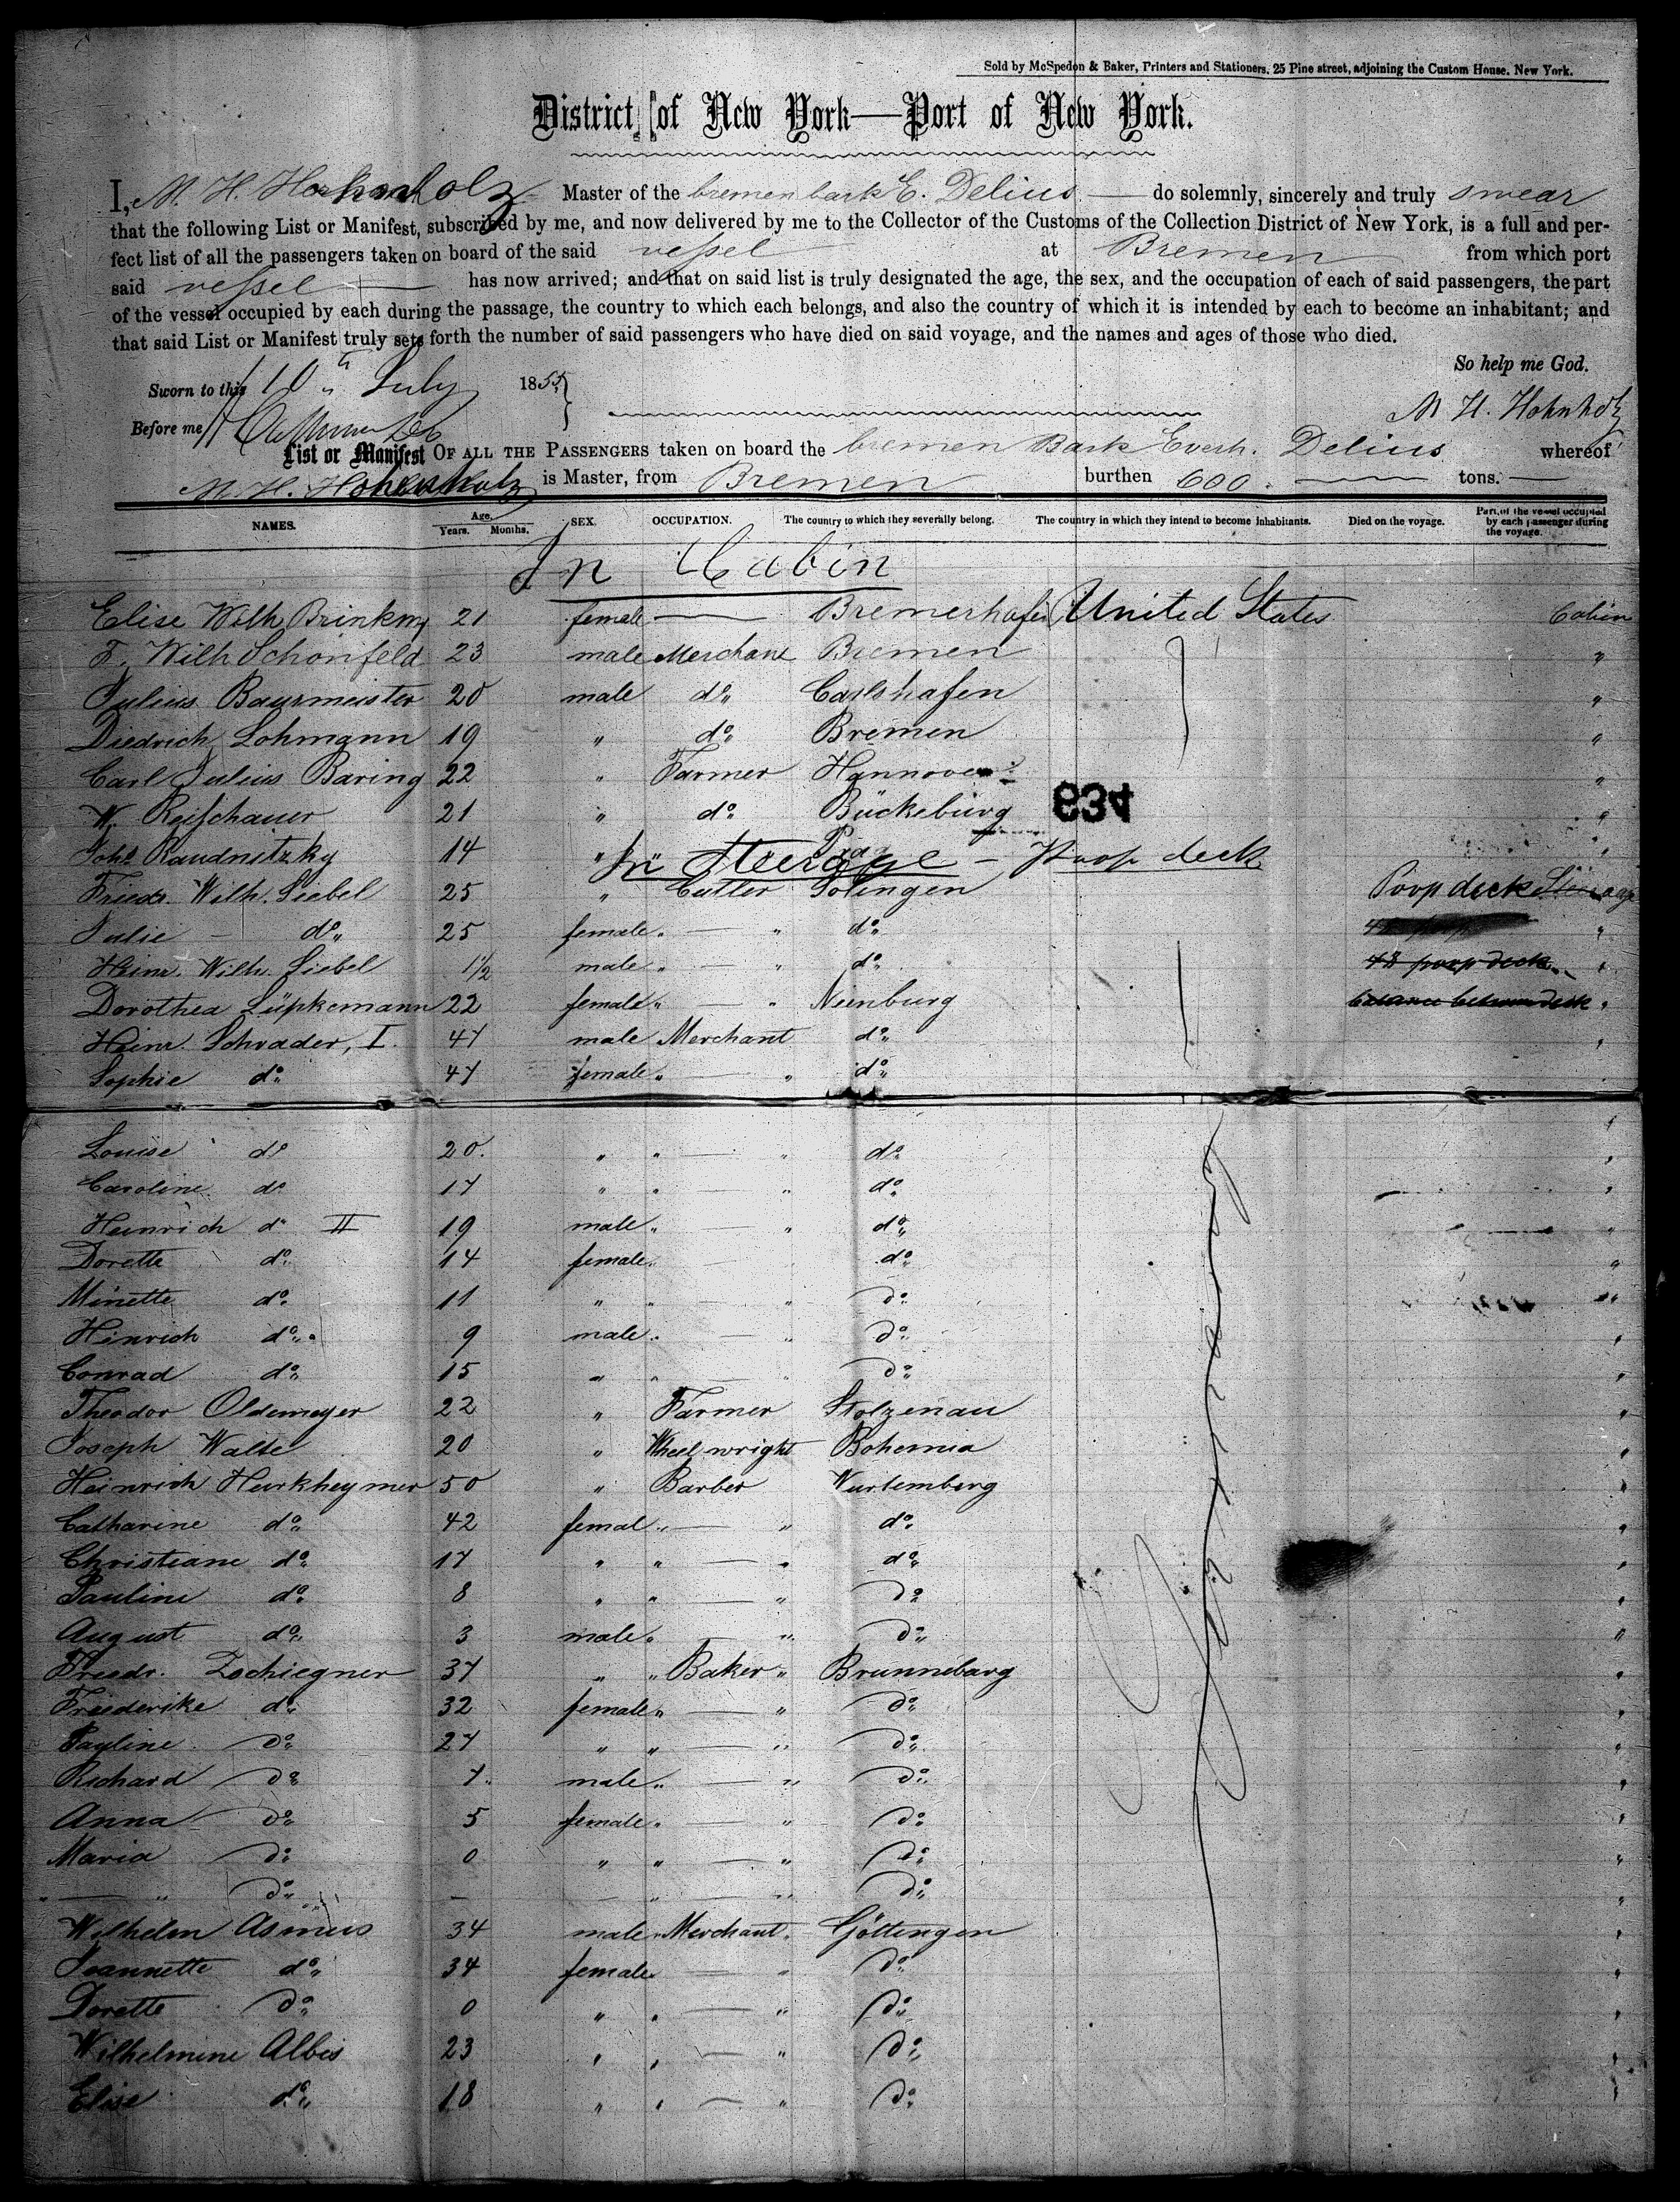 Sold by McSpedon & Baker, Printers and Stationers, 25 Pine street, adjoining the Custom House, New York.
District of New York—Port of New York.
I, M. H. Hohnholz Master of the bremen bark E. Delius do solemnly, sincerely and truly swear
that the following List or Manifest, subscribed by me, and now delivered by me to the Collector of the Customs of the Collection District of New York, is a full and per-
fect list of all the passengers taken on board of the said vessel at Bremen from which port
said vessel has now arrived; and that on said list is truly designated the age, the sex, and the occupation of each of said passengers, the part
of the vessel occupied by each during the passage, the country to which each belongs, and also the country of which it is intended by each to become an inhabitant; and
that said List or Manifest truly sets forth the number of said passengers who have died on said voyage, and the names and ages of those who died.
So help me God.
Sworn to this 10th July 1855
M H. Hohnholz
Before me
List or Manifest OF ALL THE PASSENGERS taken on board the bremen Bark Everh. Delius whereof
M. H. Hohnholz is Master, from Bremen burthen 600. tons.
NAMES. Age. Years. Months. SEX. OCCUPATION. The country to which they severally belong. The country in which they intend to become inhabitants. Died on the voyage. Part of the vessel occupied by each passenger during the voyage.
In Cabin
Elise Wilh Brinkm 21 female — Bremerhafen United States Cabin
F. Wilh Schonfeld 23 male Merchant Bremen "
Julius Baurmeister 20 male do " Carlshafen "
Diedrich Lohmann 19 " do " Bremen "
Carl Julius Baring 22 " Farmer Hannover "
W. Reifschauer 21 " do Bückeburg 634 "
Johs Raudnitzky 14 " Prag "
In Steerage — Poop deck
Friedr. Wilh. Siebel 25 " Cutler Solingen Poop deck Steerage
Julie — do " 25 female " — " do " "
Heinr. Wilh. Siebel 1½ male " — " do " 48 poop deck "
Dorothea Lüpkemann 22 female " — " Nienburg between deck "
Heinr. Schrader, I. 47 male Merchant do " "
Sophie do 47 female " " do "
Louise do 20. " " — " do "
Caroline do 17 " " — " do " "
Heinrich do II 19 male " — " do " "
Dorette do " 14 female " do " "
Minette do " 11 " " — " do "
Hinrich do " 9 male " — " do " "
Conrad do " 15 " " — " do " "
Theodor Oldemeyer 22 " Farmer Stolzenau "
Joseph Walte 20 " Wheelwright Bohemia "
Heinrich Herkheymer 50 " Barber Wurtemberg "
Catharine do " 42 femal " — " do " "
Christiane do " 17 " " — " do " "
Pauline do " 8 " " — " do "
August do " 3 male " — " do " "
Friedr. Zschiegner 37 " " Baker " Brunneberg "
Friederike do " 32 female " — " do " "
Pauline do " 27 " " — " do " "
Richard do " 7 male " — " do " "
Anna do " 5 female " — " do " "
Maria do " 0 " " — " do " "
— " do " — " — " do " "
Wilhelm Asmus 34 male " Merchant " Göttingen "
Jeannette do " 34 female " — " do " "
Dorette do " 0 " " — " do " "
Wilhelmine Albes 23 " " — " do " "
Elise do " 18 " " — " do " "
Germany